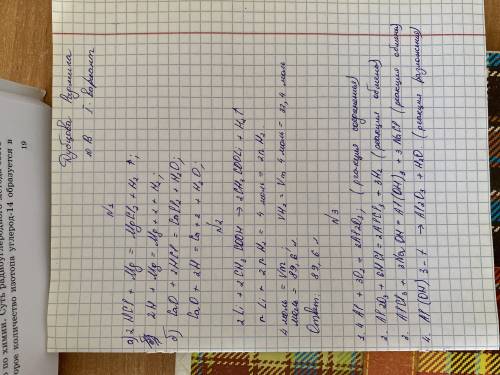 Дубцова Людмила
10 В 1 Вариант
N1
а) 2HCl + Mg = MgCl2 + H2 ↑;
2H + Mg = Mg + 2 + H2;
б) CaO + 2HCl = CaCl2 + H2O;
CaO + 2H = Ca + 2 + H2O;
N2
2 Li + 2 CH3 COOH → 2CH3 COOLi + H2 ↑
n Li = 2 n H2 = 4 моль = 2n H2
4 моль = Vm VH2 = Vm 4 моль = 22,4 моль
моль = 89,6 л
Ответ: 89,6 л
N3
1. 4 Al + 3O2 = 2Al2O3 (реакция соединения)
2. Al2O3 + 6HCl = 2AlCl3 + 3H2 (реакция обмена)
3. AlCl3 + 3NaOH = Al(OH)3 + 3NaCl (реакция обмена)
4. Al(OH)3 - t → Al2O3 + H2O (реакция разложения)
по химии. Суть радиоуглеродного метода
орое количество изотопа углерод-14 образуется в
19